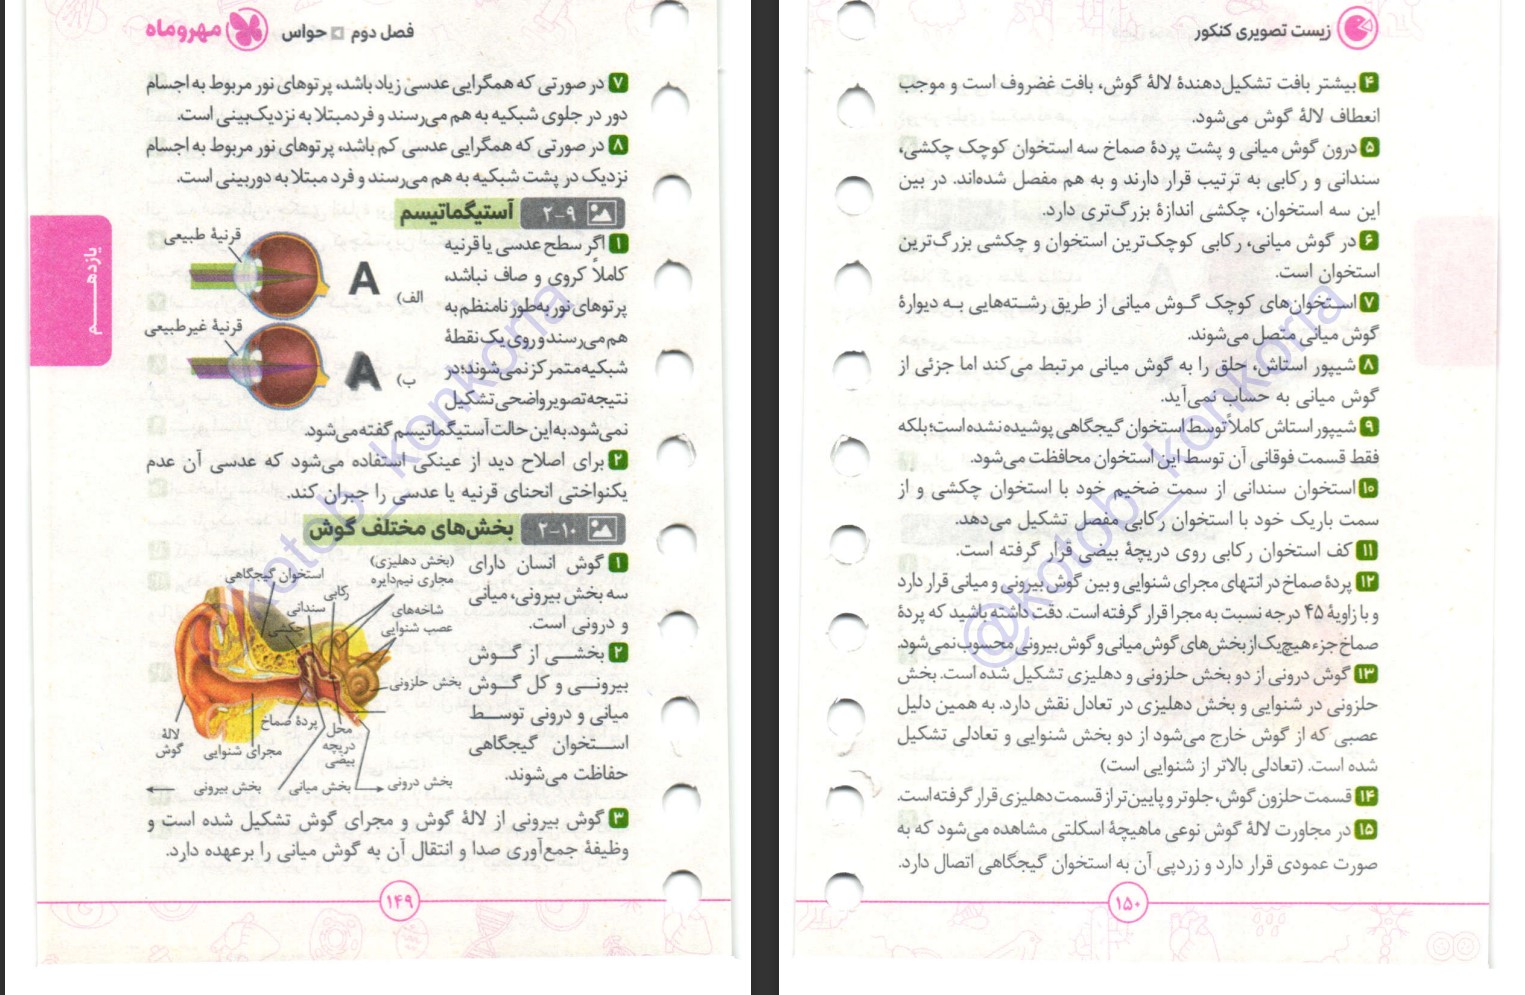 مهروماه
فصل دوم
حواس
۷ در صورتی که همگرایی عدسی زیاد باشد، پرتوهای نور مربوط به اجسام
دور در جلوی شبکیه به هم می‌رسند و فرد مبتلا به نزدیک‌بینی است.
۸ در صورتی که همگرایی عدسی کم باشد، پرتوهای نور مربوط به اجسام
نزدیک در پشت شبکیه به هم می‌رسند و فرد مبتلا به دوربینی است.
۲-۹ آستیگماتیسم
۱ اگر سطح عدسی یا قرنیه
کاملاً کروی و صاف نباشد،
پرتوهای نور به‌طور نامنظم به
هم می‌رسند و روی یک نقطهٔ
شبکیه متمرکز نمی‌شوند؛ در
نتیجه تصویر واضحی تشکیل
نمی‌شود. به این حالت آستیگماتیسم گفته می‌شود.
قرنیهٔ طبیعی
A
الف)
قرنیهٔ غیرطبیعی
A
ب)
۲ برای اصلاح دید از عینکی استفاده می‌شود که عدسی آن عدم
یکنواختی انحنای قرنیه یا عدسی را جبران کند.
۲-۱۰ بخش‌های مختلف گوش
۱ گوش انسان دارای
سه بخش بیرونی، میانی
و درونی است.
۲ بخشی از گوش
بیرونی و کل گوش
میانی و درونی توسط
استخوان گیجگاهی
حفاظت می‌شوند.
(بخش دهلیزی)
مجاری نیم‌دایره
استخوان گیجگاهی
رکابی
سندانی
چکشی
شاخه‌های
عصب شنوایی
بخش حلزونی
پردهٔ صماخ
محل
دریچه
بیضی
مجرای شنوایی
لالهٔ
گوش
بخش درونی
بخش میانی
بخش بیرونی
۳ گوش بیرونی از لالهٔ گوش و مجرای گوش تشکیل شده است و
وظیفهٔ جمع‌آوری صدا و انتقال آن به گوش میانی را برعهده دارد.
۱۴۹
یازدهم
@kotob_konkoria
زیست تصویری کنکور
۴ بیشتر بافت تشکیل‌دهندهٔ لالهٔ گوش، بافت غضروف است و موجب
انعطاف لالهٔ گوش می‌شود.
۵ درون گوش میانی و پشت پردهٔ صماخ سه استخوان کوچک چکشی،
سندانی و رکابی به ترتیب قرار دارند و به هم مفصل شده‌اند. در بین
این سه استخوان، چکشی اندازهٔ بزرگ‌تری دارد.
۶ در گوش میانی، رکابی کوچک‌ترین استخوان و چکشی بزرگ‌ترین
استخوان است.
۷ استخوان‌های کوچک گوش میانی از طریق رشته‌هایی به دیوارهٔ
گوش میانی متصل می‌شوند.
۸ شیپور استاش، حلق را به گوش میانی مرتبط می‌کند اما جزئی از
گوش میانی به حساب نمی‌آید.
۹ شیپور استاش کاملاً توسط استخوان گیجگاهی پوشیده نشده است؛ بلکه
فقط قسمت فوقانی آن توسط این استخوان محافظت می‌شود.
۱۰ استخوان سندانی از سمت ضخیم خود با استخوان چکشی و از
سمت باریک خود با استخوان رکابی مفصل تشکیل می‌دهد.
۱۱ کف استخوان رکابی روی دریچهٔ بیضی قرار گرفته است.
۱۲ پردهٔ صماخ در انتهای مجرای شنوایی و بین گوش بیرونی و میانی قرار دارد
و با زاویهٔ ۴۵ درجه نسبت به مجرا قرار گرفته است. دقت داشته باشید که پردهٔ
صماخ جزء هیچ‌یک از بخش‌های گوش میانی و گوش بیرونی محسوب نمی‌شود.
۱۳ گوش درونی از دو بخش حلزونی و دهلیزی تشکیل شده است. بخش
حلزونی در شنوایی و بخش دهلیزی در تعادل نقش دارد. به همین دلیل
عصبی که از گوش خارج می‌شود از دو بخش شنوایی و تعادلی تشکیل
شده است. (تعادلی بالاتر از شنوایی است)
۱۴ قسمت حلزون گوش، جلوتر و پایین‌تر از قسمت دهلیزی قرار گرفته است.
۱۵ در مجاورت لالهٔ گوش نوعی ماهیچهٔ اسکلتی مشاهده می‌شود که به
صورت عمودی قرار دارد و زردپی آن به استخوان گیجگاهی اتصال دارد.
۱۵۰
@kotob_konkoria